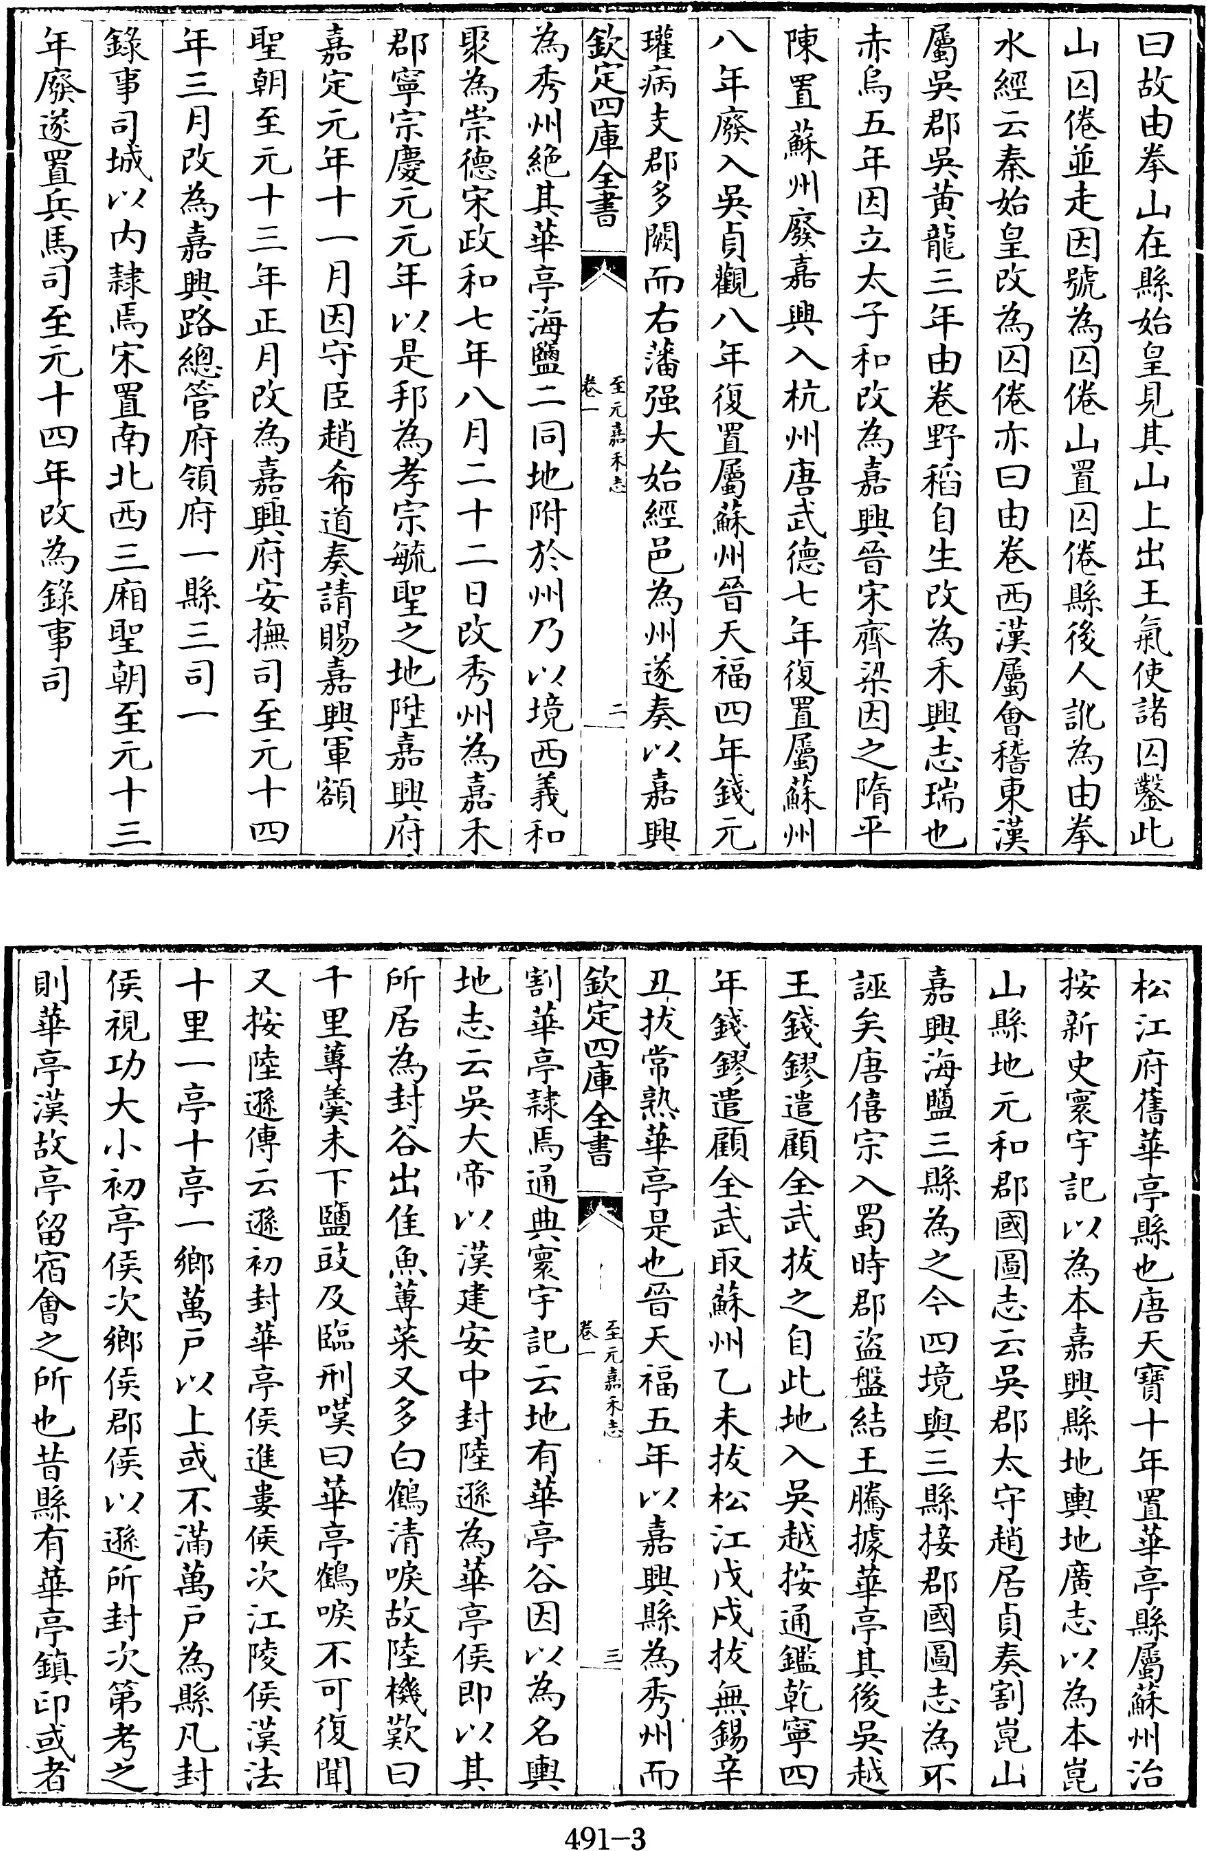 曰故由拳山在縣始皇見其山上出王氣使諸囚鑿此
山囚倦並走因號為囚倦山置囚倦縣後人訛為由拳
水經云秦始皇改為囚倦亦曰由卷西漢屬會稽東漢
屬吳郡吳黄龍三年由卷野稻自生改為禾興志瑞也
赤烏五年因立太子和改為嘉興晉宋齊梁因之隋平
陳置蘇州廢嘉興入杭州唐武德七年復置屬蘇州
八年廢入吳貞觀八年復置屬蘇州晉天福四年錢元
瓘病支郡多闕而右藩强大始經邑為州遂奏以嘉興
欽定四庫全書
至元嘉禾志
卷一
二
為秀州絶其華亭海鹽二同地附於州乃以境西義和
聚為崇德宋政和七年八月二十二日改秀州為嘉禾
郡寧宗慶元元年以是邦為孝宗毓聖之地陞嘉興府
嘉定元年十一月因守臣趙希道奏請賜嘉興軍額
聖朝至元十三年正月改為嘉興府安撫司至元十四
年三月改為嘉興路總管府領府一縣三司一
錄事司城以内隸焉宋置南北西三廂聖朝至元十三
年廢遂置兵馬司至元十四年改為錄事司
松江府舊華亭縣也唐天寶十年置華亭縣屬蘇州治
按新史寰宇記以為本嘉興縣地輿地廣志以為本崑
山縣地元和郡國圖志云吳郡太守趙居貞奏割崑山
嘉興海鹽三縣為之今四境與三縣接郡國圖志為不
誣矣唐僖宗入蜀時郡盜盤結王騰據華亭其後吳越
王錢鏐遣顧全武拔之自此地入吳越按通鑑乾寧四
年錢鏐遣顧全武取蘇州乙未拔松江戊戌拔無錫辛
丑拔常熟華亭是也晉天福五年以嘉興縣為秀州而
欽定四庫全書
至元嘉禾志
卷一
三
割華亭隸焉通典寰宇記云地有華亭谷因以為名輿
地志云吳大帝以漢建安中封陸遜為華亭侯即以其
所居為封谷出佳魚蓴菜又多白鶴清唳故陸機歎曰
千里蓴羹未下鹽豉及臨刑嘆曰華亭鶴唳不可復聞
又按陸遜傳云遜初封華亭侯進婁侯次江陵侯漢法
十里一亭十亭一鄉萬戸以上或不滿萬戸為縣凡封
侯視功大小初亭侯次鄉侯郡侯以遜所封次第考之
則華亭漢故亭留宿會之所也昔縣有華亭鎮印或者
491-3